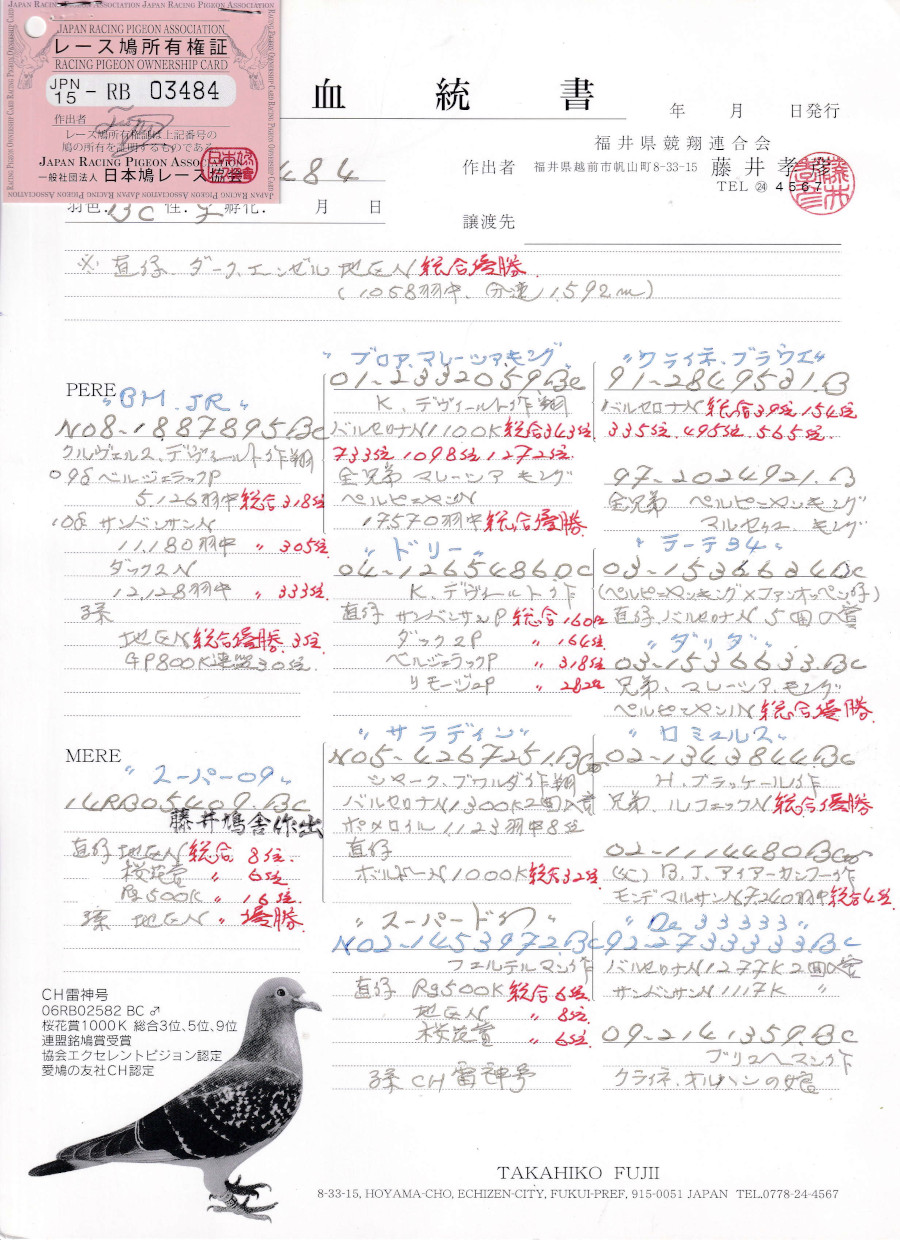 JAPAN RACING PIGEON ASSOCIATION
レース鳩所有権証
RACING PIGEON OWNERSHIP CARD
JPN 15 - RB 03484
作出者
レース鳩所有権証は上記番号の
鳩の所有を証明するものである。
JAPAN RACING PIGEON ASSOCIATION
一般社団法人 日本鳩レース協会
血統書
年 月 日発行
福井県競翔連合会
作出者 福井県越前市帆山町8-33-15 藤井孝彦
TEL ㉔ 4567
484
羽色. BC 性. ♀ 孵化. 月 日
譲渡先
※ 直仔 ダーク、エンゼル 地区N 総合優勝
(1058羽中、分速 1592m)
PERE
"BM. JR"
N08-1887895.BC
クルヴェルス、デヴィールト作翔
09年 ベルジェラックP
5,126羽中 総合318位
10年 サンバンサンN
11,180羽中 〃 305位
ダックス2N
12,128羽中 〃 333位
孫
地区N 総合優勝. 3位
GP800K連盟30位
"ブロア、マレーシアキング
01-2332059.BC
K、デヴィールト作翔
バルセロナN1100K 総合343位
733位 1098位 1272位
全兄弟 マレーシア キング
ペルピニャンN
17570羽中 総合優勝
"ドリー"
04-1265486DC
K、デヴィールト作
直仔 サンバンサンP 総合160位
ダックス2P 〃 164位
ベルジェラックP 〃 318位
リモージュP 〃 282位
"クライネ、ブラウエ"
91-2849531.B
バルセロナN 総合39位 154位
335位. 495位. 565位
97-2024921.B
全兄弟 ペルピニャンキング
マルセイユ キング
"テーテ34"
03-1536634BC
(ペルピニャンキング×ファンオッペン仔)
直仔、バルセロナN 5回入賞
"ダリダ"
03-1536633.BC
兄弟、マレーシア、キング
ペルピニャンN 総合優勝
MERE
"スーパー09"
14RB05409.BC
藤井鳩舎作出
直仔 地区N 総合 8位.
桜花賞 〃 6位
Rg500K 〃 16位
孫 地区N 〃 優勝
"サラディン"
N05-4267251.BC
ジャーク、ブワルダ作翔
バルセロナN1300K2回入賞
ポメロイル1123羽中8位
直仔
ボルドーN1000K 総合32位
"スーパードン"
N02-1453972.BC
フェルデルマン作
直仔 Rg500K 総合6位
地区N 〃 8位
桜花賞 〃 6位
孫 CH 雷神号
"ロミュルス
02-1343844.BC
H、ブラッケール作
兄弟、ルフェックN 総合優勝
02-1114480BC
B.J.アイアーカンプ作
モンデマルサンN7240羽中 総合4位
"De 33333"
92-2733333.BC
バルセロナN1277K2回入賞
サンバンサンN1117K 〃
09-2141359.BC
ブリュヘマン作
クライネ、オルハンの娘
CH雷神号
06RB02582 BC ♂
桜花賞1000K 総合3位、5位、9位
連盟銘鳩賞受賞
協会エクセレントピジョン認定
愛鳩の友社CH認定
TAKAHIKO FUJII
8-33-15, HOYAMA-CHO, ECHIZEN-CITY, FUKUI-PREF, 915-0051 JAPAN TEL.0778-24-4567